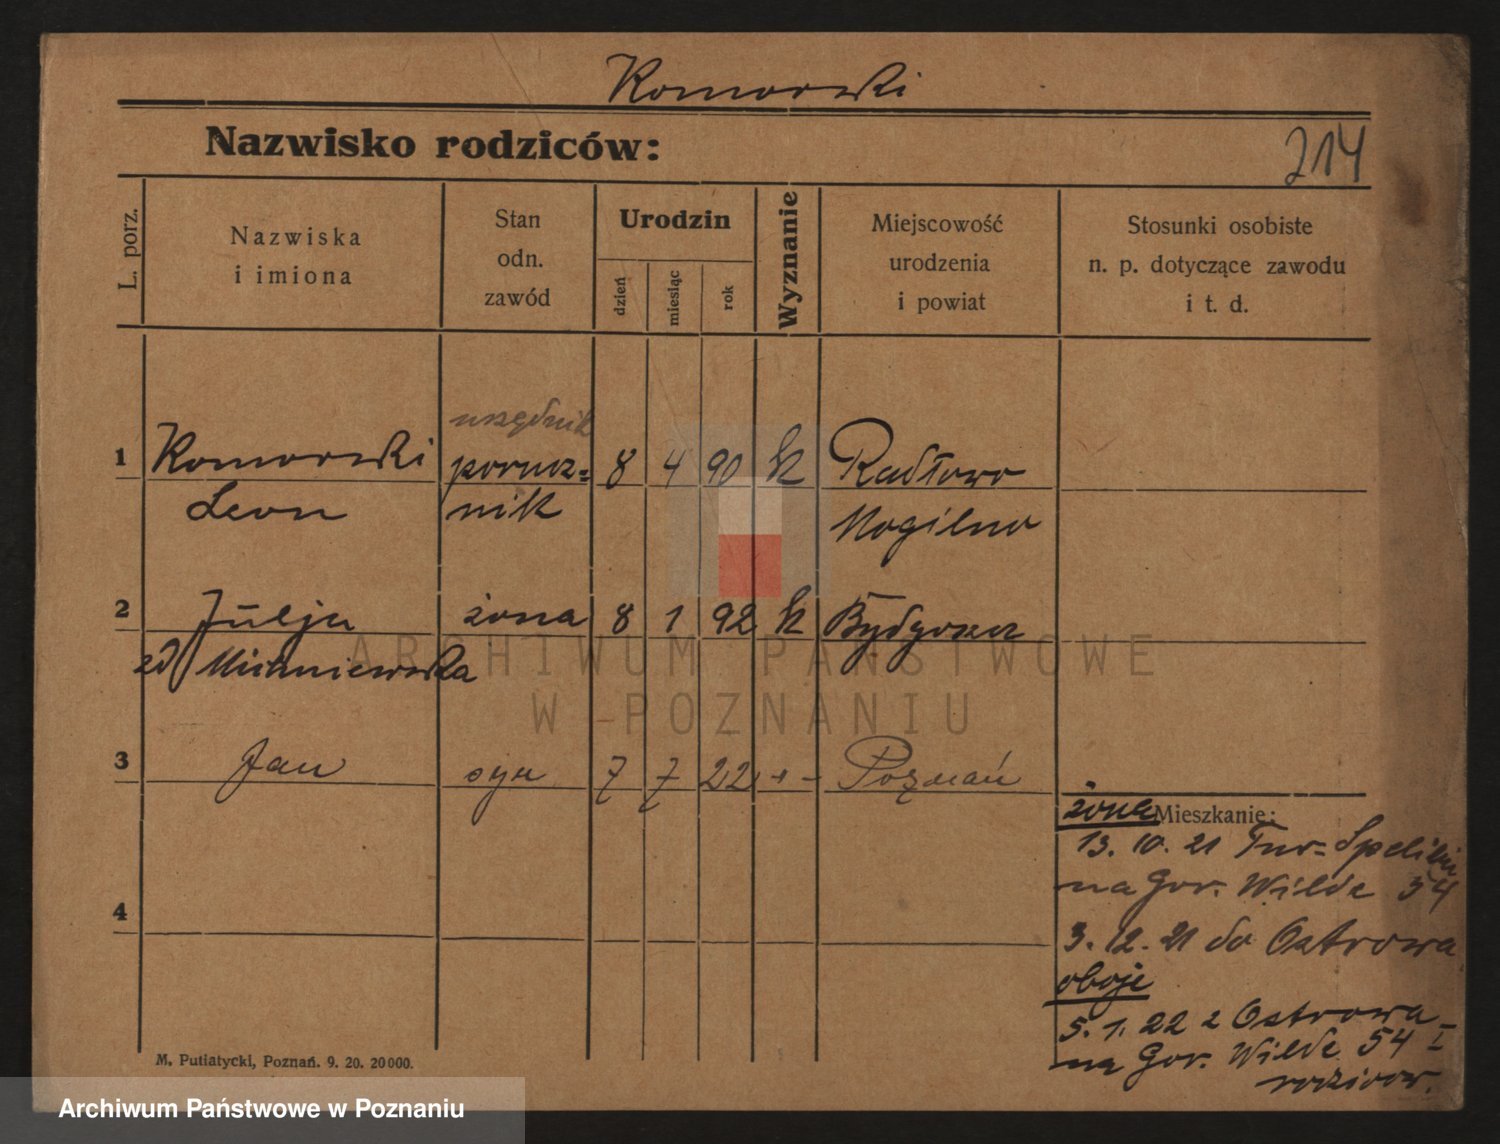 Komorowski
Nazwisko rodziców:
214
L. porz.
Nazwiska
i imiona
Stan
odn.
zawód
Urodzin
dzień
miesiąc
rok
Wyznanie
Miejscowość
urodzenia
i powiat
Stosunki osobiste
n. p. dotyczące zawodu
i t. d.
urzędnik
1 Komorowski porucz= 8 4 90 k Radłowo
Leon nik Mogilno
2 Julja żona 8 1 92 k Bydgoszcz
zd
3 Jan syn 7 7 22 -"- Poznań
żona Mieszkanie:
13. 10. 21
na Gor. Wilde 54
4
3. 12. 21 do Ostrowa
oboje
5. 1. 22 z Ostrowa
na Gor. Wilde 54 I
rodziców.
M. Putiatycki, Poznań. 9. 20. 20000.
ARCHIWUM PAŃSTWOWE
W POZNANIU
Archiwum Państwowe w Poznaniu